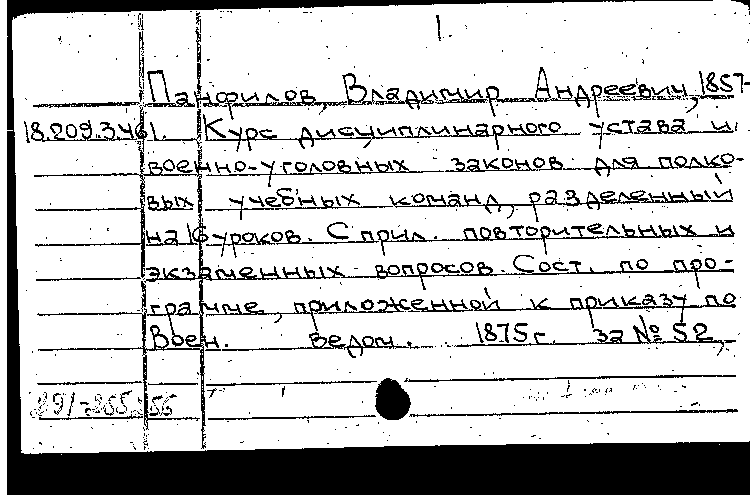 1.
Панфилов, Владимир Андреевич, 1857-
18.209.3.461. Курс дисциплинарного устава и
военно-уголовных законов для полко-
вых учебных команд, разделенный
на 16 уроков. С прил. повторительных и
экзаменных вопросов. Сост. по про-
грамме, приложенной к приказу по
Воен. ведом. 1875 г. за № 52,